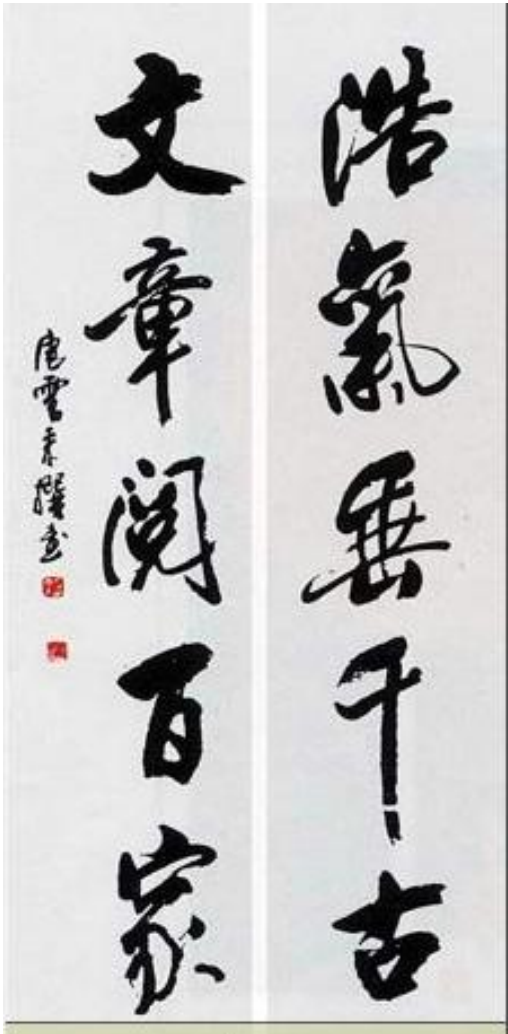 浩氣垂千古
文章閱百家
唐雲来撰书